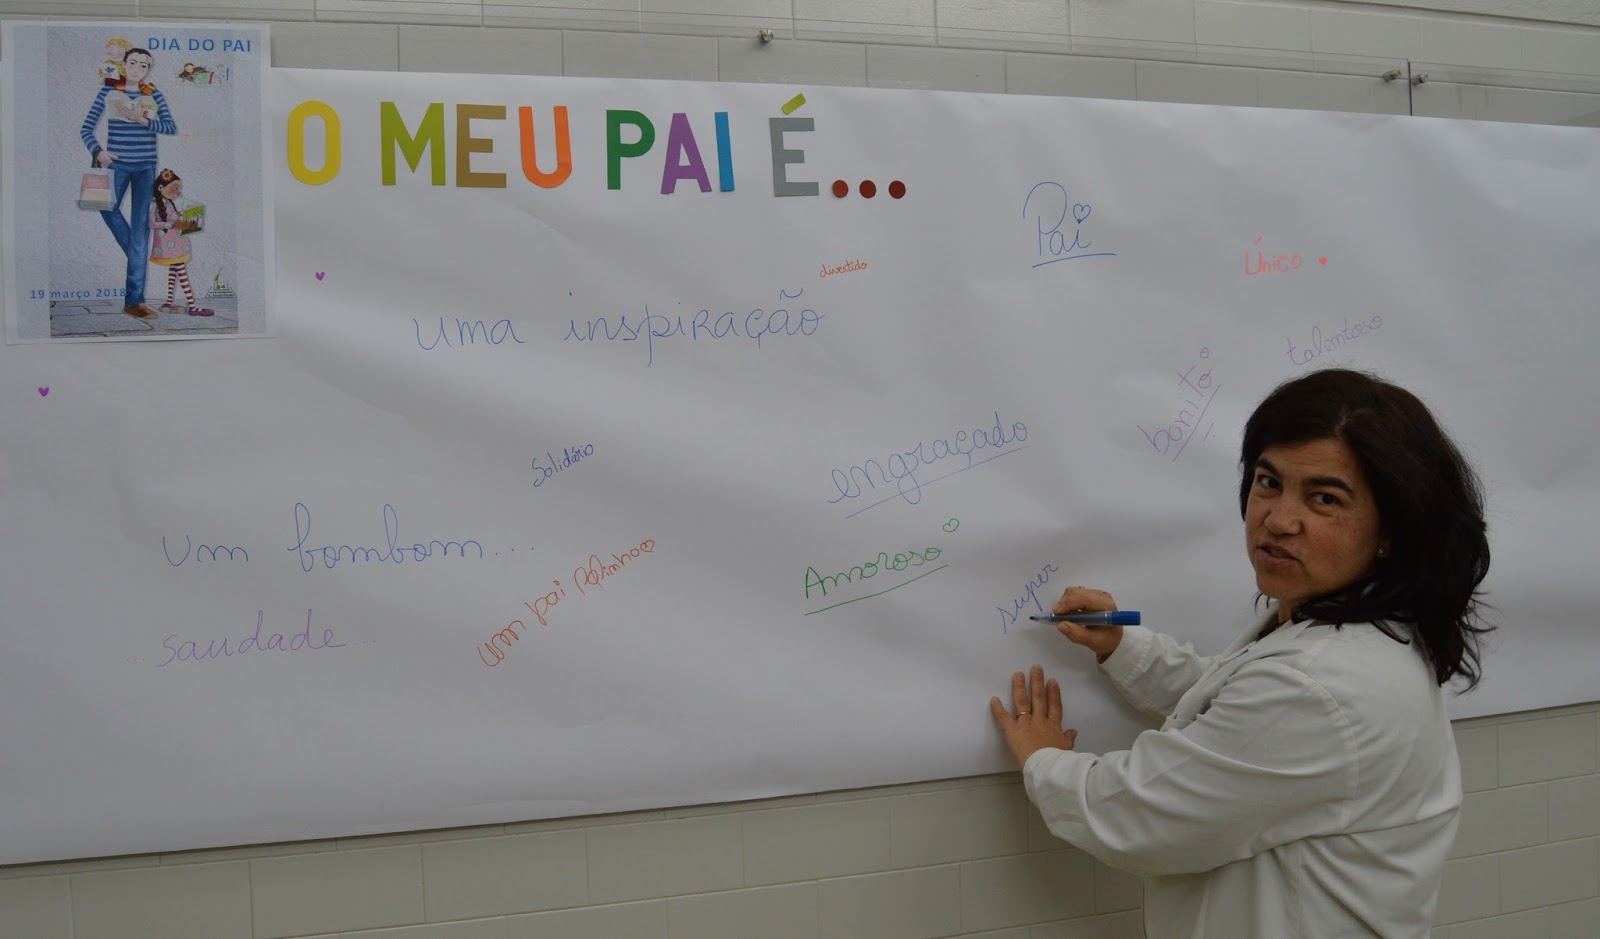 DIA DO PAI
19 março 2018
O MEU PAI É...
Pai
Único
divertido
uma inspiração
talentoso
bonito
engraçado
Solidário
um bombom...
Amoroso
super
um pai
...saudade...